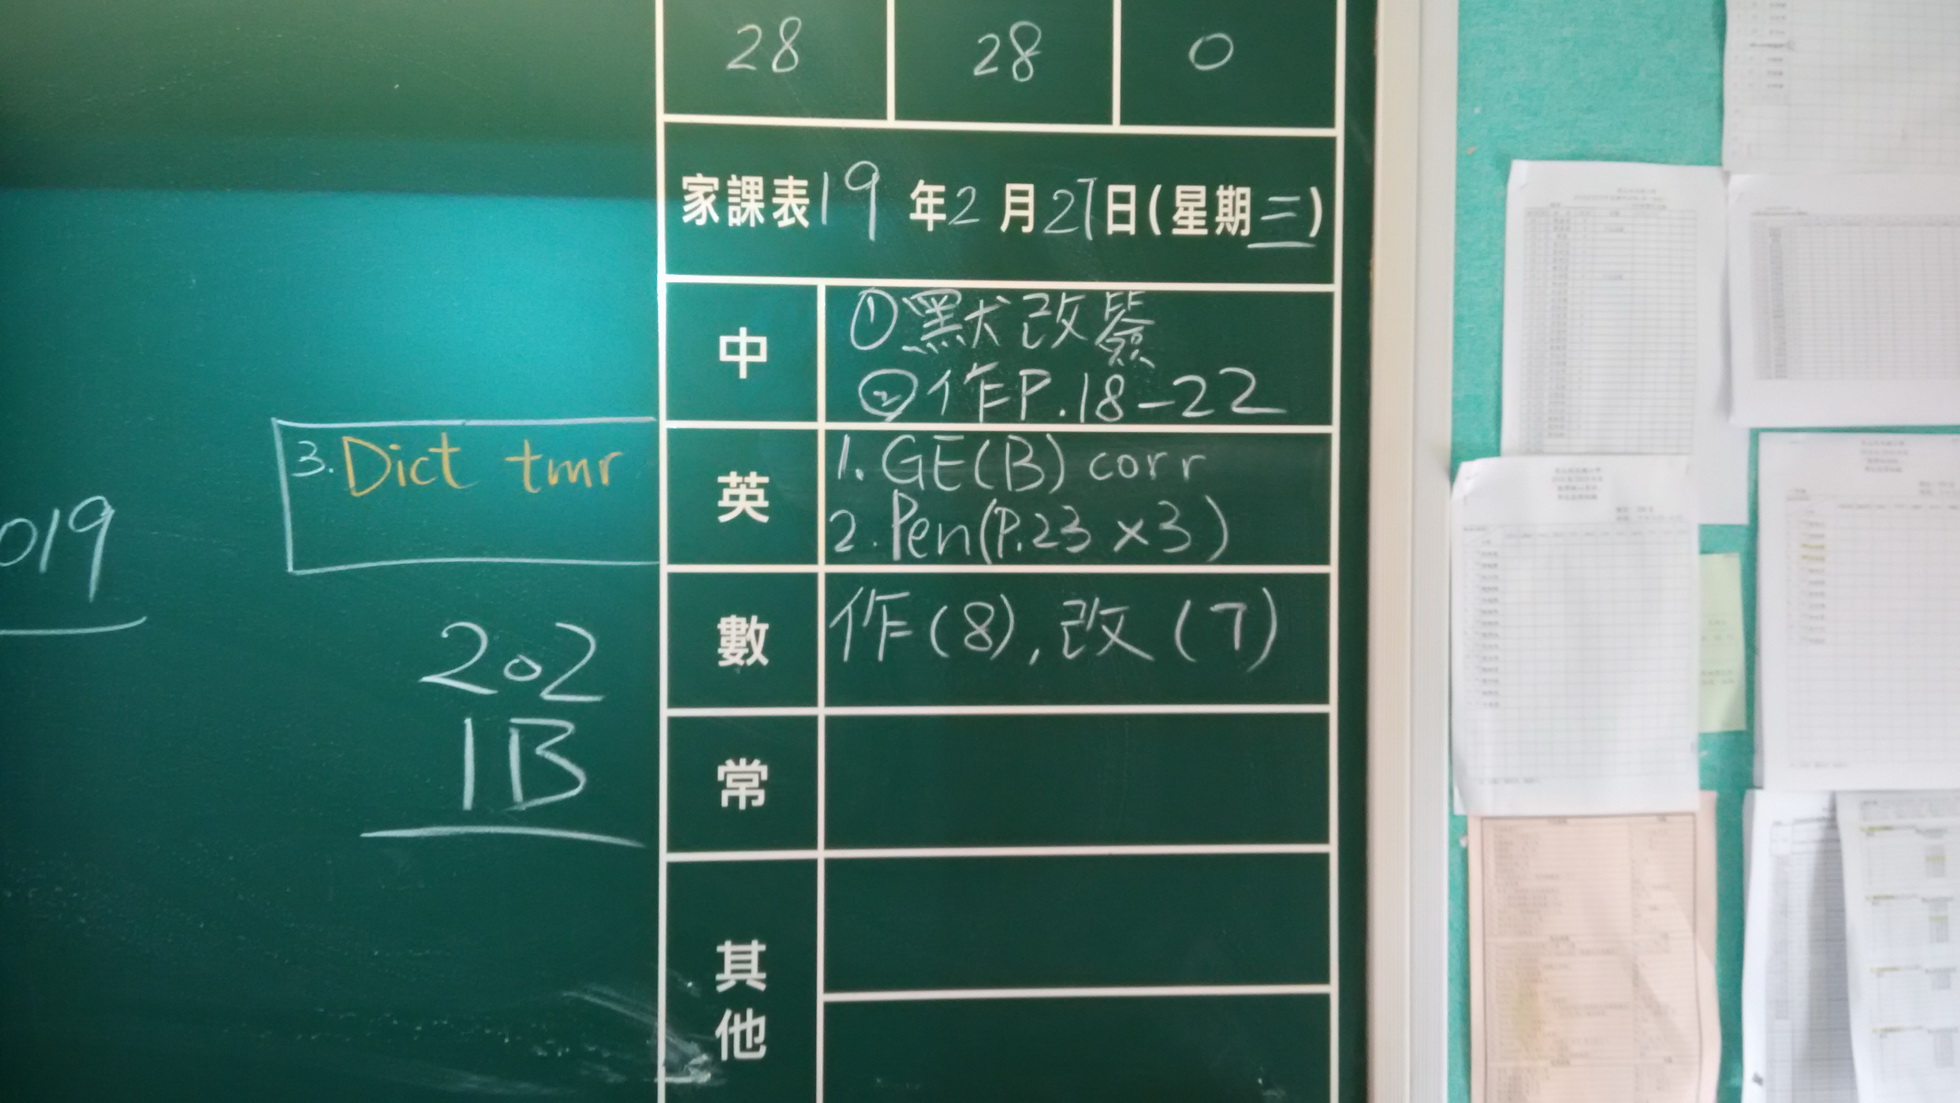 28 28 0
家課表19年2月27日(星期三)
中
①默改簽
②作P.18-22
英
1. GE(B) corr
2. Pen(P.23 x3)
3. Dict tmr
數
作(8), 改(7)
常
其他
019
202
1B